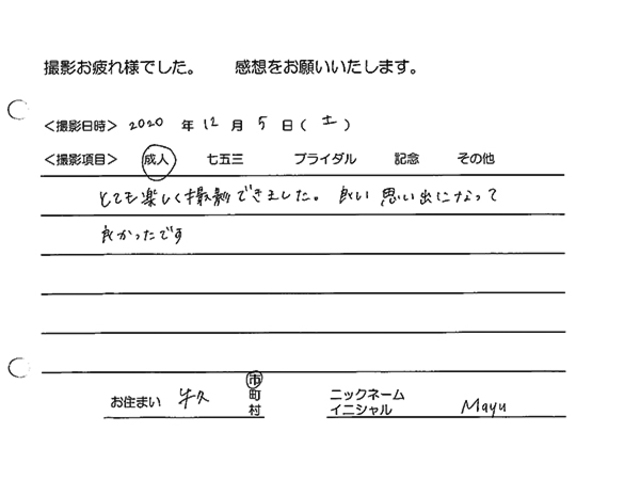 撮影お疲れ様でした。 感想をお願いいたします。
＜撮影日時＞ 2020 年 12 月 5 日（ 土 ）
＜撮影項目＞ 成人 七五三 ブライダル 記念 その他
とても楽しく撮影できました。良い思い出になって
良かったです
お住まい 牛久 市町村
ニックネーム イニシャル Mayu